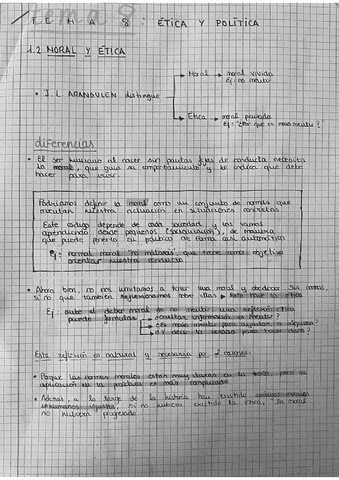 TEMA 8: ÉTICA Y POLÍTICA
1.2 MORAL Y ÉTICA
Moral → moral vivida
Ej: no mentir
• J.L. ARANGUREN distingue
Ética → moral pensada
Ej: "¿Por qué es malo mentir?"
diferencias
• El ser humano al nacer sin pautas fijas de conducta necesita
la moral, que guía su comportamiento y le indica que debe
hacer para vivir.
Podríamos definir la moral como un conjunto de normas que
orientan nuestra actuación en situaciones concretas
Este código depende de cada sociedad y los vamos
aprendiendo desde pequeños (socialización), de manera
que puede ponerlo en práctica de forma casi automática
Ej: normal moral "no matarás", que tiene como objetivo
orientar nuestra conducta
• Ahora bien, no nos limitamos a tener una moral y obedecer sus normas,
si no que también reflexionamos sobre ellas → Esto hace la ética
Ej: ante el deber moral de no mentir una reflexión ética
puede formular: → ¿ocultar información es mentir?
→ ¿es malo mentir para ayudar a alguien?
→ ¿ decir la verdad para hacer daño?
Esta reflexión es natural y necesaria por 2 razones:
• Porque las normas morales están muy claras en la teoría, pero su
aplicación en la práctica es más complicada
• Además, a lo largo de la historia han existido códigos morales
inhumanos injustos, si no hubiera existido la ética, la moral
no hubiera progresado